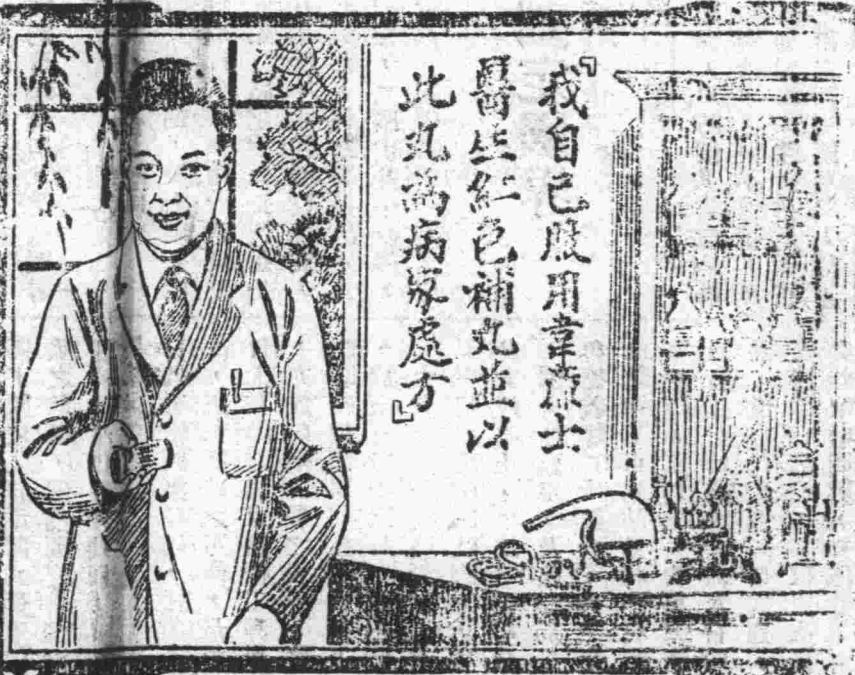 『我自己服用韋廉士
醫生紅色補丸並以
此丸為病家處方』